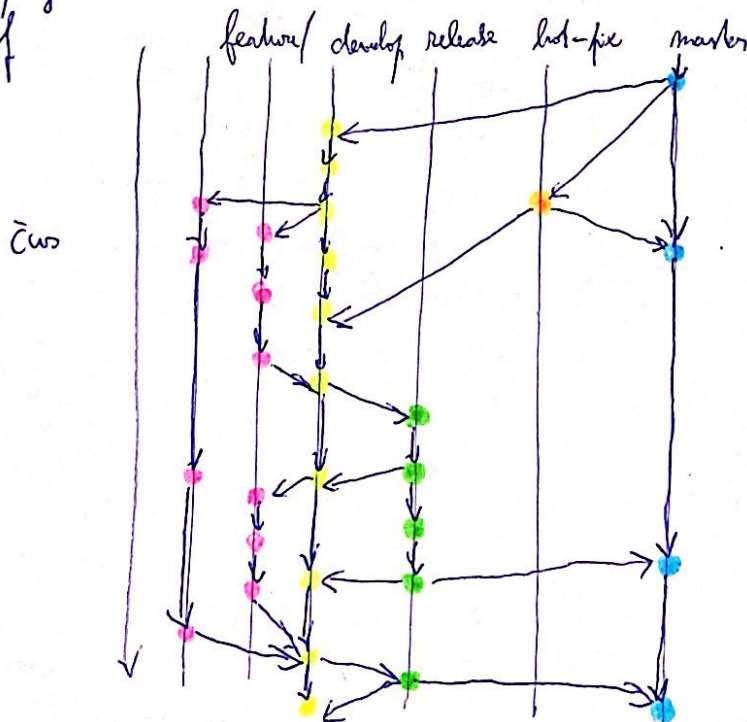 feature/ develop release hot-fix master
čas